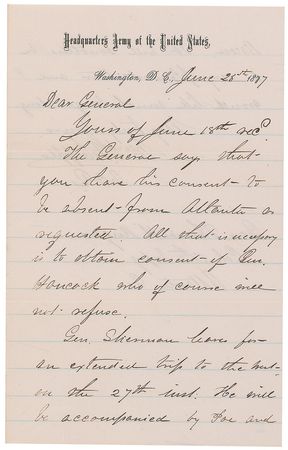 Headquarters Army of the United States,
Washington, D.C., June 25th 1877
Dear General
Yours of June 18th rec'd.
The General says that
you have his consent to
be absent from Atlanta as
requested. All that is necessary
is to obtain consent of Gen.
Hancock who of course will
not refuse.
Gen. Sherman leaves for
an extended trip to the west
on the 27th inst. He will
be accompanied by Poe and